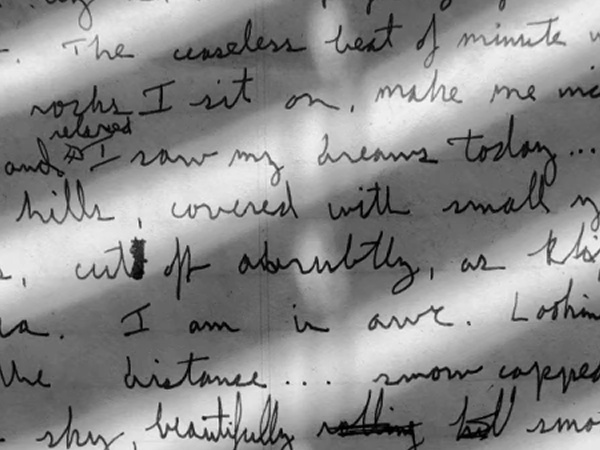 . The ceaseless beat of minute
rocks I sit on, make me
relaxed
and I saw my dreams today...
hills, covered with small
, cut off abrubtly, as
. I am in awe. Lookin
the distance... snow capped
sky, beautifully rolling